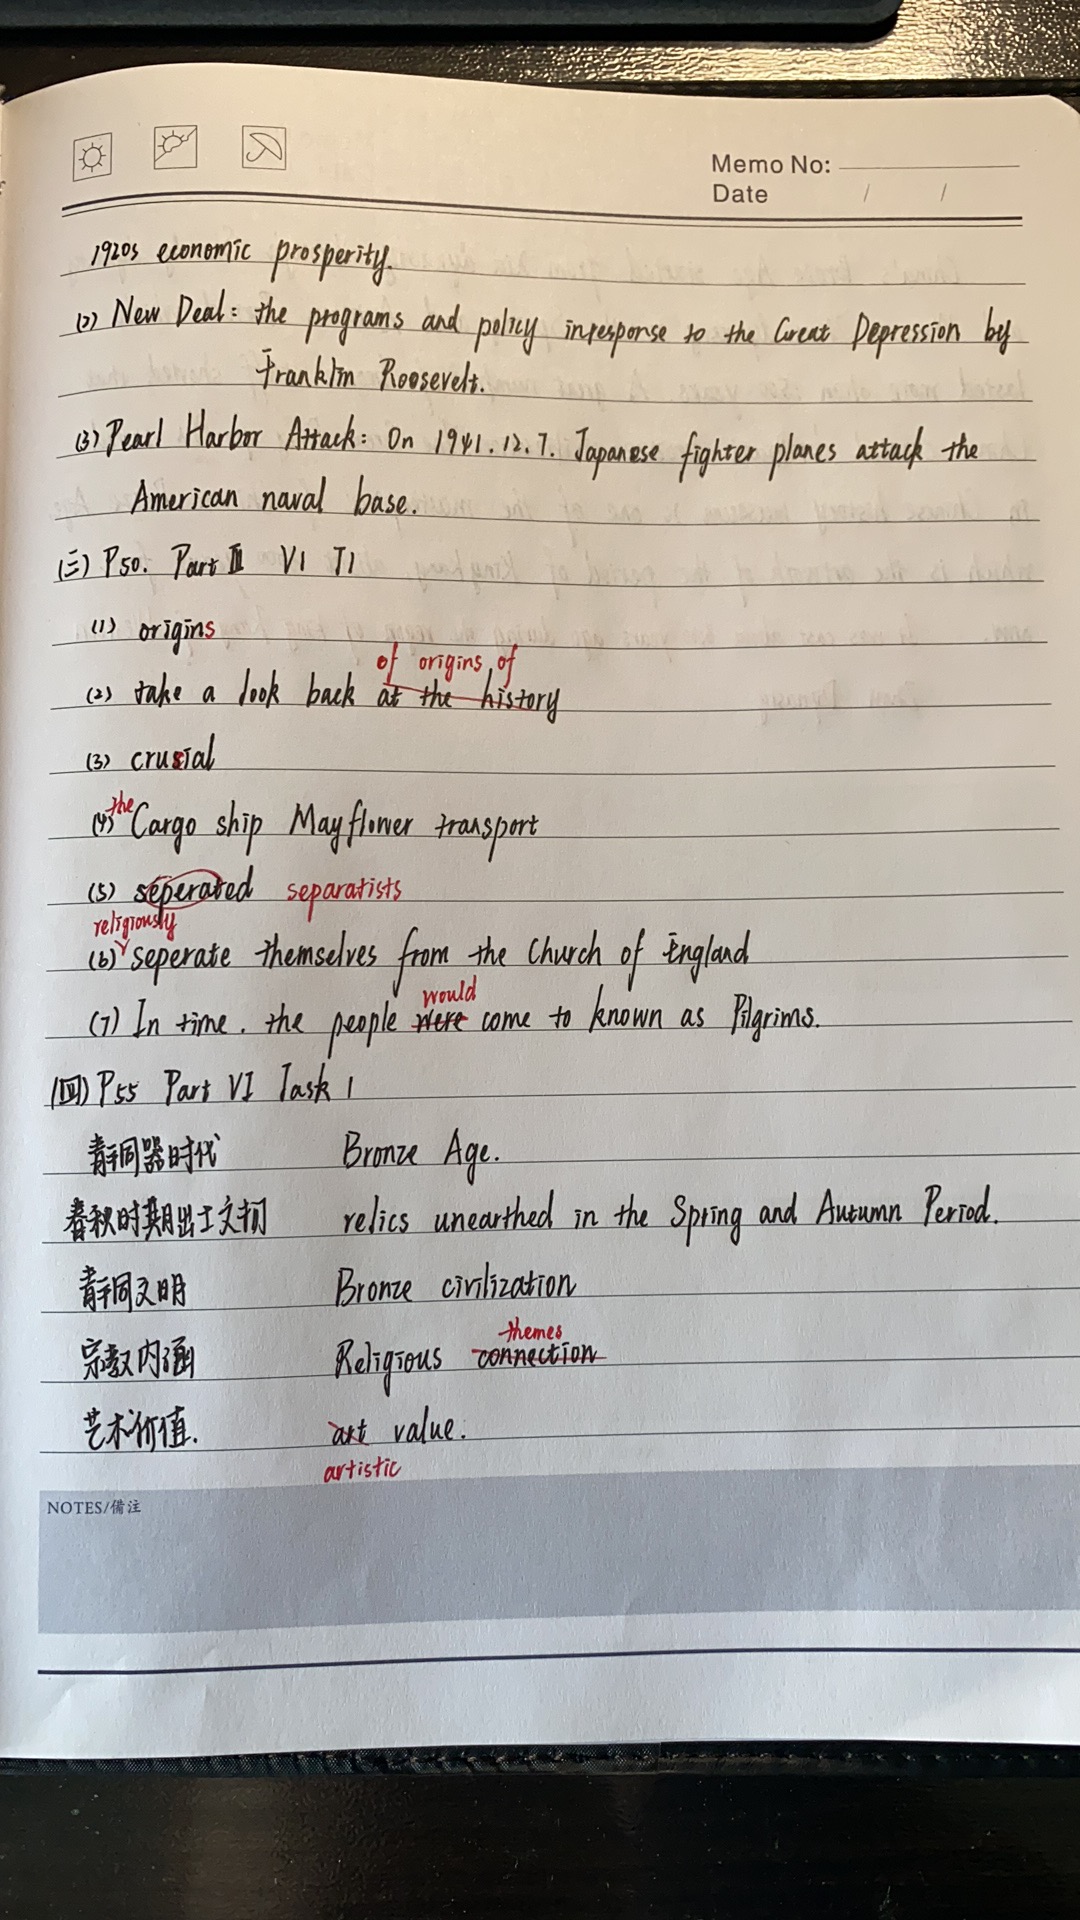 Memo No:
Date / /
1920s economic prosperity.
(2) New Deal: the programs and policy inresponse to the Great Depression by
Franklin Roosevelt.
(3) Pearl Harbor Attack: On 1941.12.7. Japanese fighter planes attack the
American naval base.
(三) P50. Part III V1 T1
(1) origins
of origins of
(2) take a look back at the history
(3) crusial
the
(4) Cargo ship Mayflower transport
(5) seperated separatists
religiously
(6) seperate themselves from the Church of England
would
(7) In time. the people were come to known as Pilgrims.
(四) P55 Part VI Task 1
青铜器时代 Bronze Age.
春秋时期出土文物 relics unearthed in the Spring and Autumn Period.
青铜文明 Bronze civilization
themes
宗教内涵 Religious connection
艺术价值. art value.
artistic
NOTES/備注